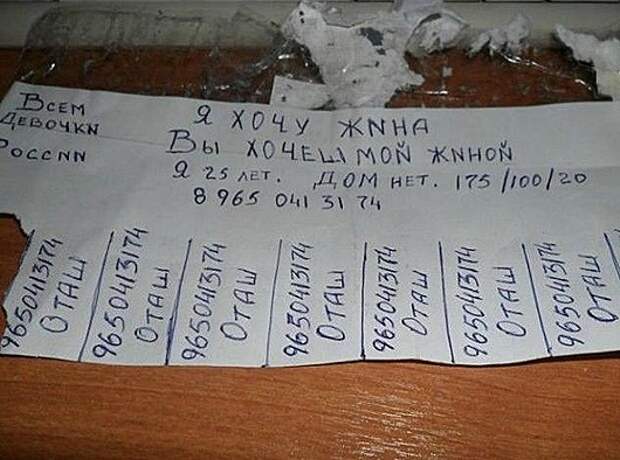 ВСЕМ
ДЕВОЧКN
РОССNN
Я ХОЧУ ЖNНА
ВЫ ХОЧЕШ МОЙ ЖNНОЙ
Я 25 ЛЕТ. ДОМ НЕТ. 175/100/20
8 965 041 31 74
9650413174
ОТАШ
9650413174
ОТАШ
9650413174
ОТАШ
9650413174
ОТАШ
9650413174
ОТАШ
9650413174
ОТАШ
9650413174
ОТАШ